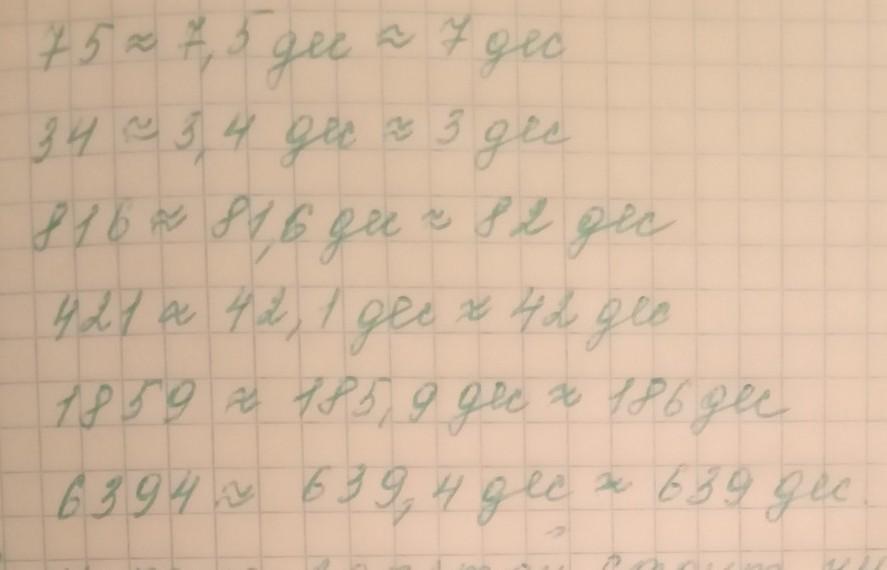 75 ≈ 7,5 дес ≈ 7 дес
34 ≈ 3,4 дес ≈ 3 дес
816 ≈ 81,6 дес ≈ 82 дес
421 ≈ 42,1 дес ≈ 42 дес
1859 ≈ 185,9 дес ≈ 186 дес
6394 ≈ 639,4 дес ≈ 639 дес